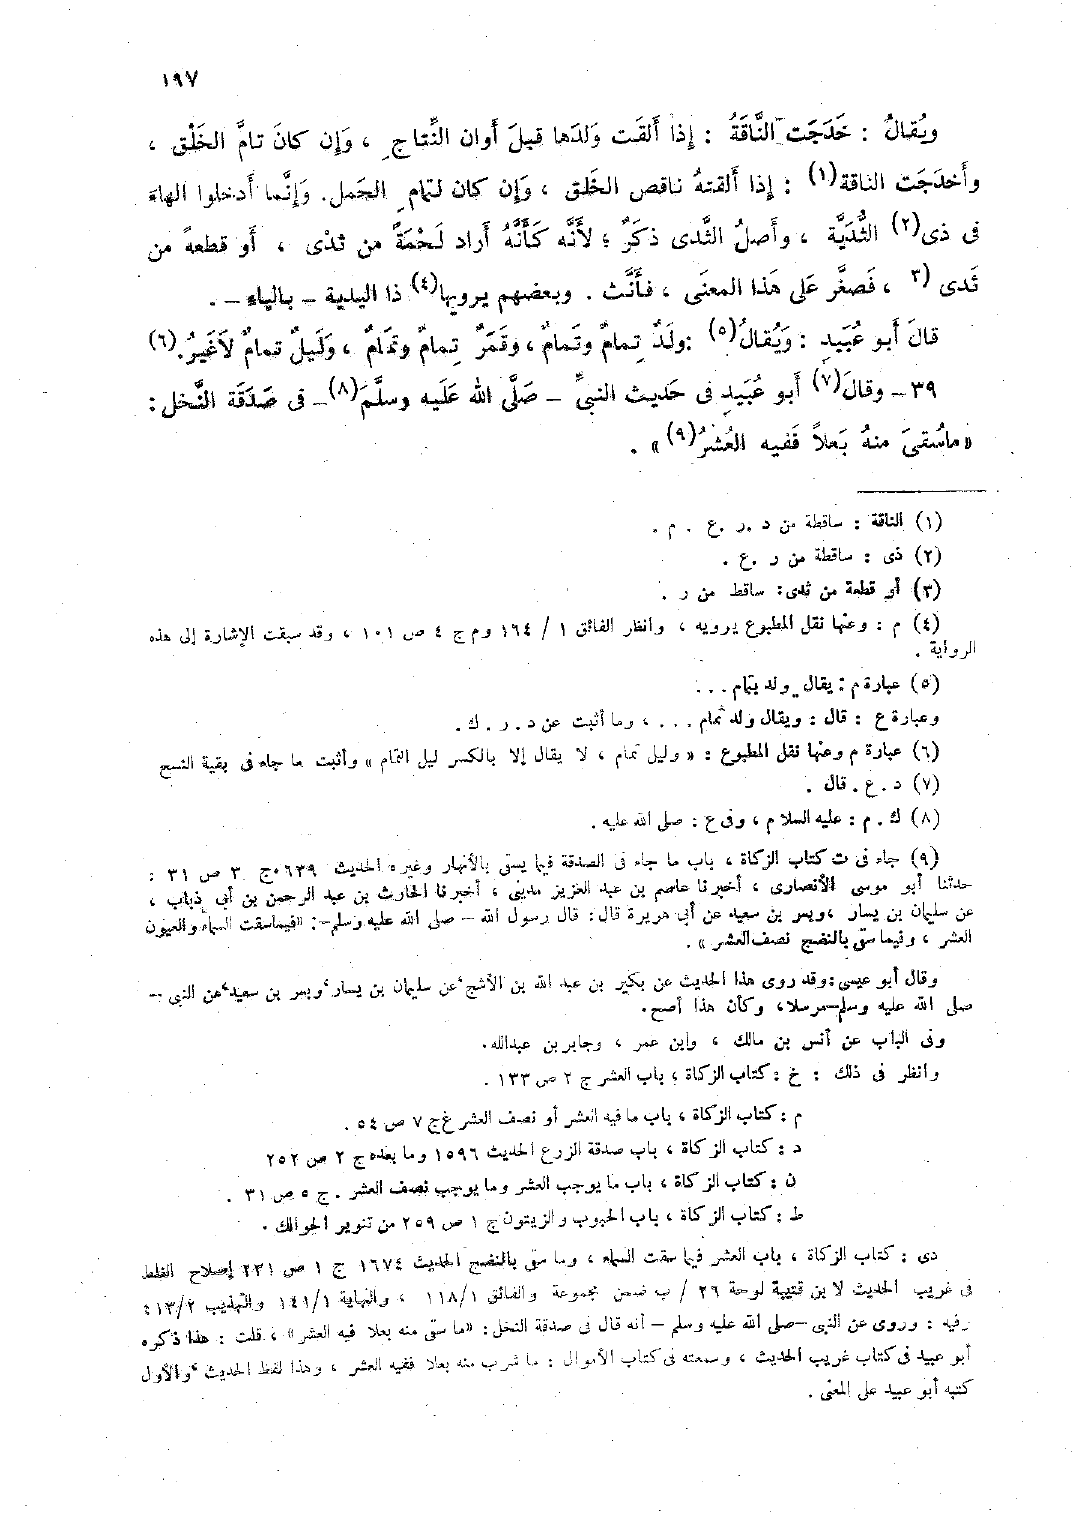 ١٩٧
ويُقالُ : خَدَجَت النَّاقَةُ : إذا أَلقَت وَلدَها قبلَ أوان النِّتاج ، وَإن كانَ تامَّ الخَلْق ،
وأَخدَجَت الناقة(١) : إذا أَلقتهُ ناقص الخَلق ، وَإن كان لتمام الحَمل. وَإنَّما أَدخلوا الهاءَ
فى ذى(٢) الثُّدَيَّة ، وأَصلُ الثَّدى ذكَرٌ ؛ لأَنَّه كَأَنَّهُ أَراد لَحْمَةً من ثدْى ، أو قطعةً من
ثَدى (٣ ، فَصغَّر عَلى هَذا المعنَى ، فأَنَّث . وبعضهم يرويها(٤) ذا اليدية – بالياء – .
قالَ أبو عُبَيدٍ : وَيُقالُ(٥) :ولَدٌ تِمامٌ وتَمامٌ ، وقَمَرٌ تِمامٌ وتَمَامٌ ، وَليلٌ تمامٌ لاَغَيرُ.(٦)
٣٩ – وقالَ(٧) أَبو عُبَيدٍ فى حَديث النبىِّ – صَلَّى الله عَلَيه وسلَّمَ(٨)– فى صَدَقَة النَّخل :
«ماسُقىَ منهُ بَعلاً فَفيه العُشرُ(٩)» .
(١) الناقة : ساقطة من د .ر .ع . م .
(٢) ذى : ساقطة من ر .ع .
(٣) أو قطعة من ثدى: ساقط من ر .
(٤) م : وعنها نقل المطبوع يرويه ، وانظر الفائق ١ / ١٦٤ وم ج ٤ ص ١٠١ ، وقد سبقت الإشارة إلى هذه
الرواية .
(٥) عبارة م : يقال ولد تمام ...
وعبارة ع : قال : ويقال ولد تمام ... ، وما أثبت عن د . ر . ك.
(٦) عبارة م وعنها نقل المطبوع : « وليل تمام ، لا يقال إلا بالكسر ليل التمام » وأثبت ما جاء فى بقية النسخ
(٧) د . ع . قال .
(٨) ك . م : عليه السلام ، وفى ع : صلى الله عليه .
(٩) جاء فى ت كتاب الزكاة ، باب ما جاء فى الصدقة فيما يستى بالأنهار وغيره الحديث ٦٣٩ج ٣ ص ٣١ :
حدثنا أبو موسى الأنصارى ، أخبرنا عاصم بن عبد العزيز مدينى ، أخبرنا الحارث بن عبد الرحمن بن أبى ذباب ،
عن سليمان بن يسار ،وبسر بن سعيد عن أبى هريرة قال: قال رسول الله – صلى الله عليه وسلم–: «فيماسقت السماء والعيون
العشر ، وفيما سقى بالنضح نصف العشر » .
وقال أبو عيسى:وقد روى هذا الحديث عن بكير بن عبد الله بن الأشج ،عن سليمان بن يسار ،وبسر بن سعيد ،عن النبى –
صلى الله عليه وسلم–مرسلا، وكأن هذا أصح.
وفى الباب عن أنس بن مالك ، وابن عمر ، وجابر بن عبدالله.
وانظر فى ذلك : خ : كتاب الزكاة ؛ باب العشر ج ٢ ص ١٣٣ .
م : كتاب الزكاة ، باب ما فيه العشر أو نصف العشر غ ج ٧ ص ٥٤ .
د : كتاب الزكاة ، باب صدقة الزرع الحديث ١٥٩٦ وما بعده ج ٢ ص ٢٥٢
ن : كتاب الزكاة ، باب ما يوجب العشر وما يوجب نصف العشر . ج ٥ ص ٣١ .
ط : كتاب الزكاة ، باب الحبوب والزيتون ج ١ ص ٢٥٩ من تنوير الحوالك .
دى : كتاب الزكاة ، باب العشر فيما سقت السماء ، وما سقى بالنضح الحديث ١٦٧٤ ج ١ ص ٣٣١ إصلاح الغلط
فى غريب الحديث لابن قتيبة لوحة ٢٦ / ب ضمن مجموعة والفائق ١/ ١١٨ ، والنهاية ١/ ١٤١ والتهذيب ٢/ ١٣ :
وفيه : وروى عن النبى –صلى الله عليه وسلم – أنه قال فى صدقة النخل: «ما سقى منه بعلا فيه العشر» ، قلت : هذا ذكره
أبو عبيد فى كتاب غريب الحديث ، وسمعته فى كتاب الأموال : ما شرب منه بعلا ففيه العشر ، وهذا لفظ الحديث ، والأول
كتبه أبو عبيد على المعنى .